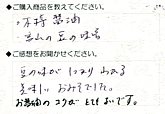 ◆ご購入商品を教えてください。
・本格醤油
豆の味噌
◆ご感想をお聞かせください。
豆の味が しっかり ある
美味しい おみそでした。
お醤油の コクが とても よいです。